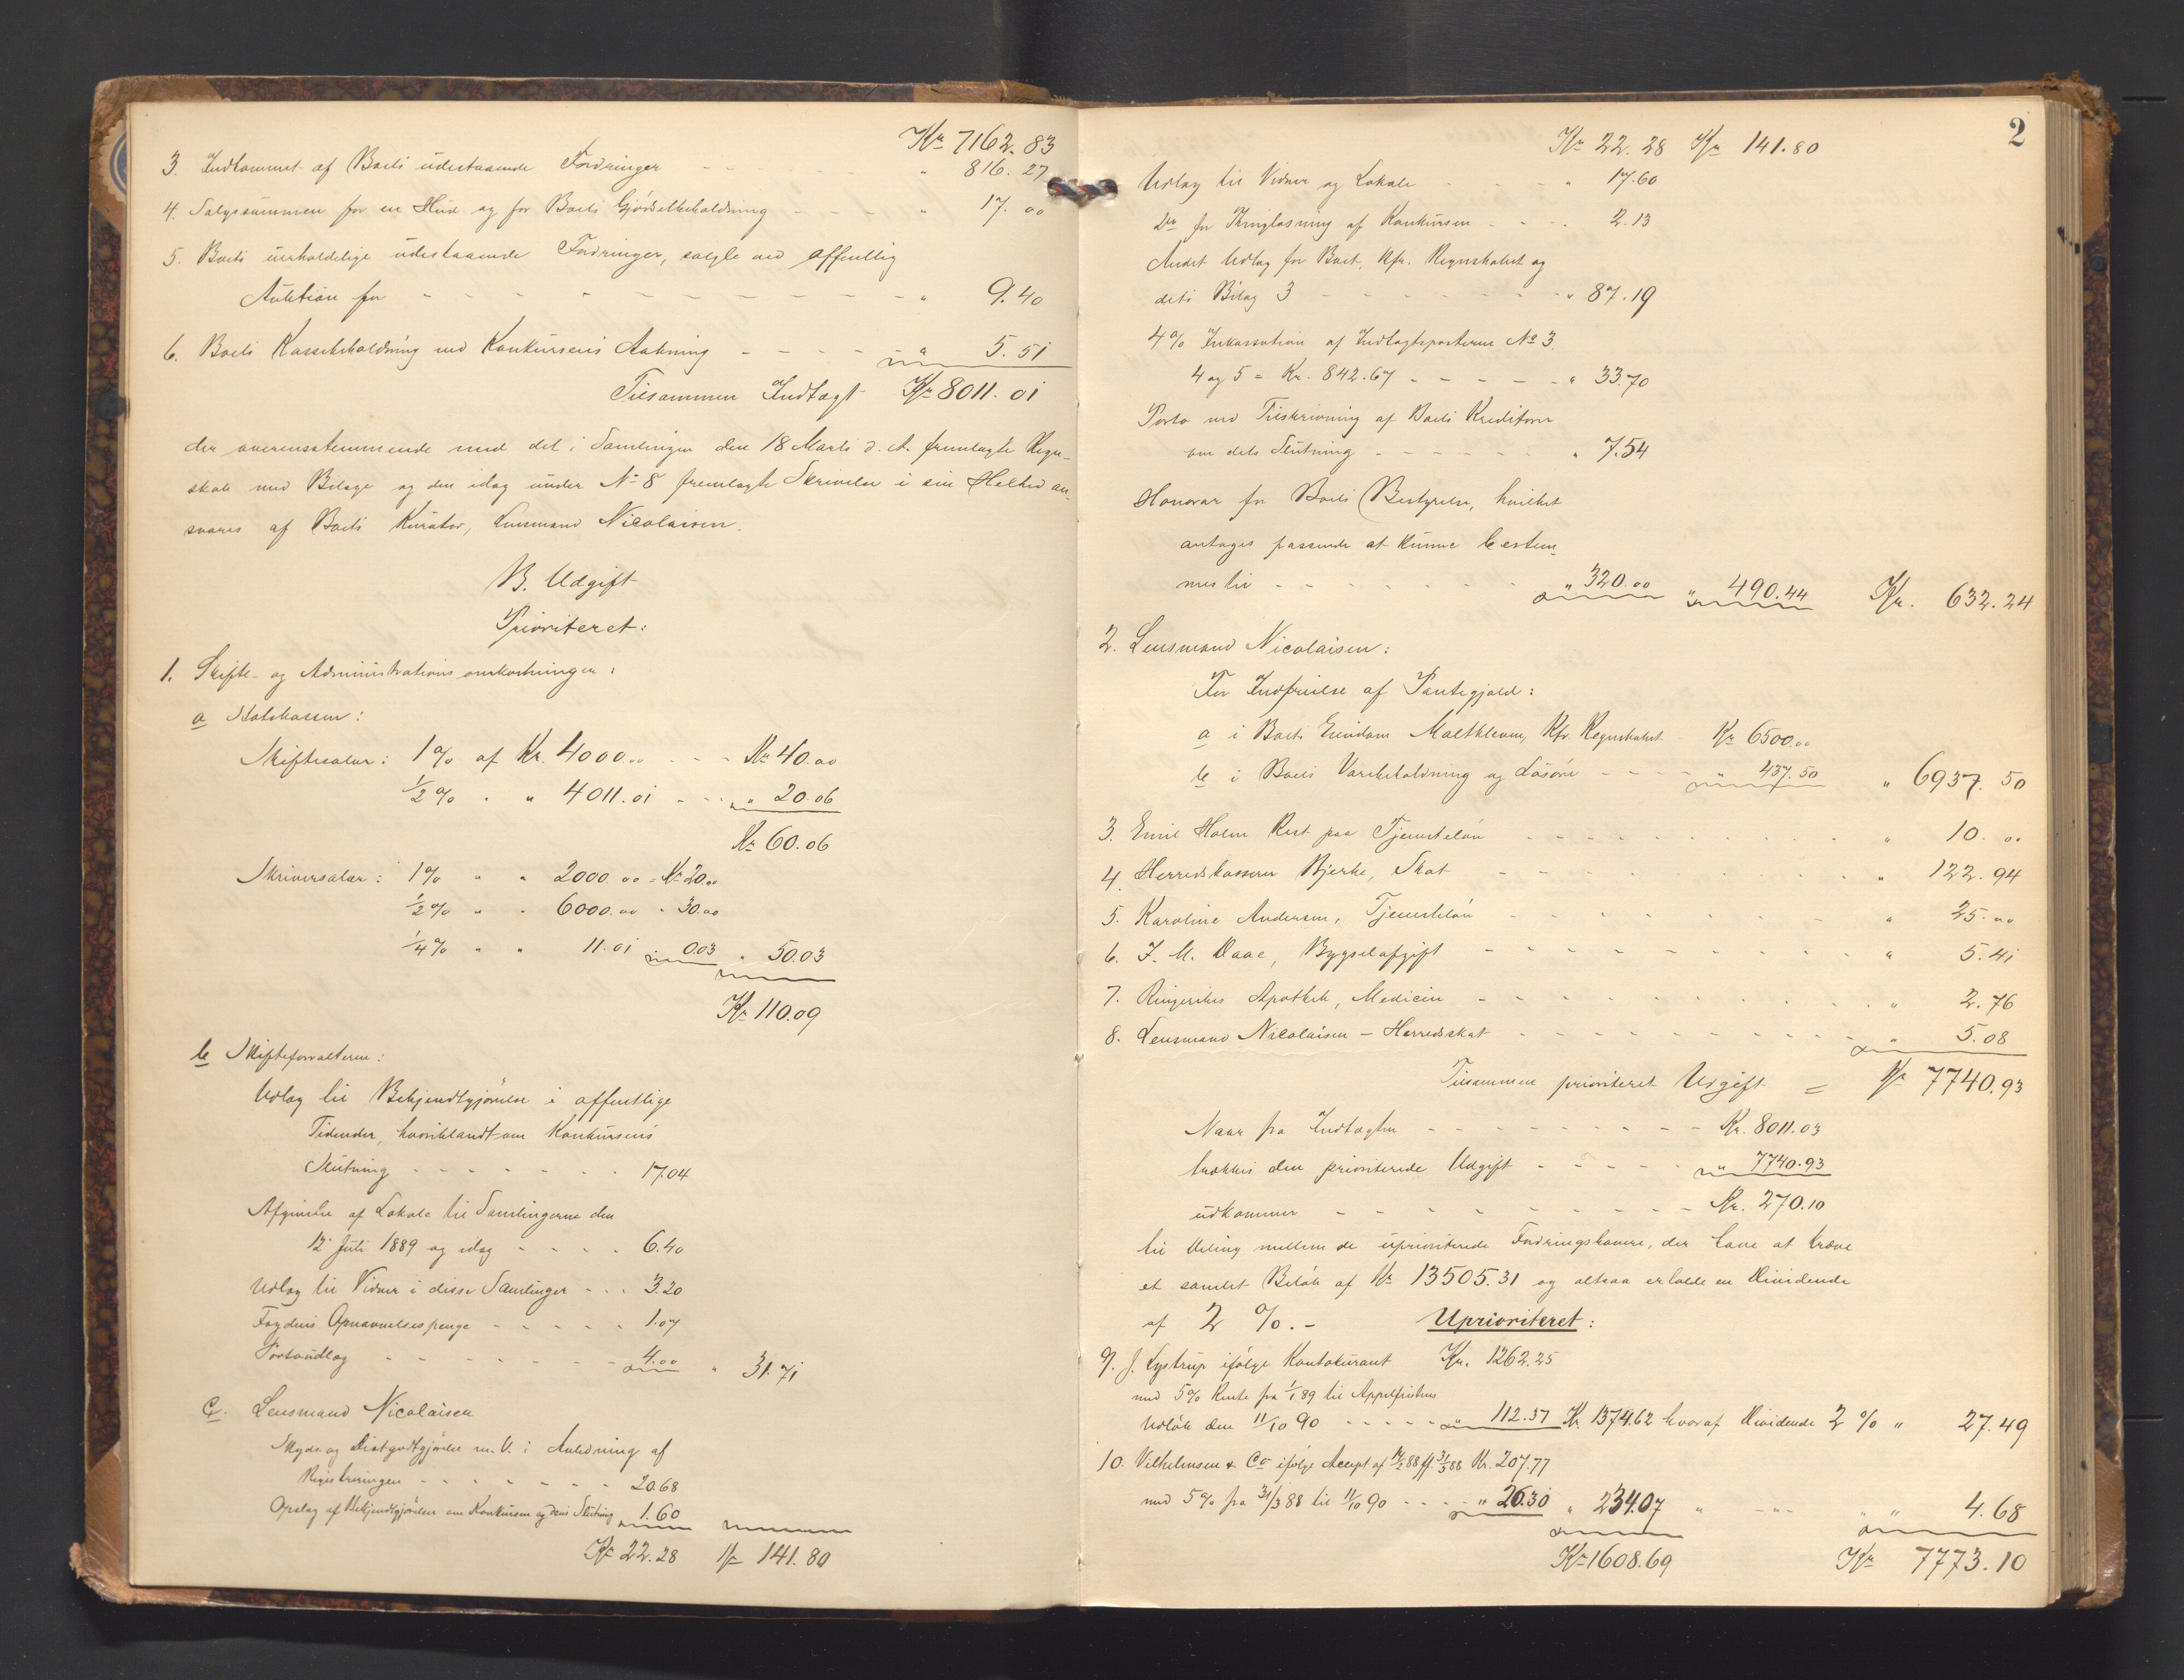 Kr 7162.83
3. Indkommet af Boets udestaaende Fordringer - - - " 816.27
4. Salgssummen for en Hud og for Boets Gjødselbeholdning - - - " 17.00
5. Boets uerholdelige udestaaende Fordringer, solgte ved offentlig
Auktion for - - - - - - - - " 9.40
6. Boets Kassebeholdning ved Konkursens Aabning - - - - " 5.51
Tilsammen Indtægt Kr 8011.01
der overensstemmende med det i Samlingen den 18 Marts d. A. fremlagte Regn-
skab med Bilage og den idag under No 8 fremlagte Skrivelse i sin Helhed an-
svares af Boets Kurator, Lensmand Nicolaisen.
B. Udgift
Prioriteret:
1. Skifte- og Administrationsomkostninger:
a Statskassen:
Skiftesalær: 1 % af Kr. 4000.00 - - - Kr 40.00
1/2 % " " 4011.01 - - - " 20.06
Kr 60.06
Skriversalær: 1 % " " 2000.00 = Kr 20.00
1/2 % " " 6000.00 " 30.00
1/4 % " " 11.01 " 0.03 " 50.03
Kr 110.09
b Skifteforvalteren:
Udlæg til Bekjendtgjørelse i offentlige
Tidender, hvoriblandt om Konkursens
Slutning - - - - - - - 17.04
Afgivelse af Lokale til Samlingerne den
12 Juli 1889 og idag - - - - 6.40
Udlæg til Vidner i disse Samlinger - - - 3.20
Fogdens Opnævnelsespenge - - - - - 1.07
Portoudlæg - - - - - - - 4.00 " 31.71
c. Lensmand Nicolaisen
Skyds og Diætgodtgjørelse m. V. i Anledning af
Registreringen - - - - - - - 20.68
Opslag af Bekjendtgjørelser om Konkursen og dens Slutning 1.60
Kr 22.28 Kr 141.80
2
Kr 22.28 Kr 141.80
Udlæg til Vidner og Lokale - - - - " 17.60
Do for Thinglæsning af Konkursen - - - 2.13
Andet Udlæg for Boet, kfr. Regnskabet og
dets Bilag 3 - - - - - - - " 87.19
4 % Inkassation af Indtægtsposterne No 3,
4 og 5 = Kr. 842.67 - - - - - " 33.70
Porto ved Tilskrivning af Boets Kreditorer
om dets Slutning - - - - - - " 7.54
Honorar for Boets Bestyrelse, hvilket
antages passende at kunne bestem-
mes til - - - - - - " 320.00 " 490.44 Kr. 632.24
2. Lensmand Nicolaisen:
For Indfrielse af Pantegjæld:
a i Boets Eiendom Maltkleven, Kfr. Regnskabet Kr 6500.00
b i Boets Varebeholdning og Løsøre - - - " 437.50 " 6937.50
3. Emil Holm Rest paa Tjenesteløn - - - - - - - " 10.00
4. Herredskasserer Bjerke, Skat - - - - - - - " 122.94
5. Karoline Andersen, Tjenesteløn - - - - - - - " 25.00
6. I. M. Daae, Bygselafgift - - - - - - - " 5.41
7. Ringerikes Apothek, Medicin - - - - - - - " 2.76
8. Lensmand Nicolaisen - Herredsskat - - - - - - - " 5.08
Tilsammen prioriteret Udgift = Kr 7740.93
Naar fra Indtægten - - - - - - - Kr. 8011.03
trækkes den prioriterede Udgift - - - - - " 7740.93
udkommer - - - - - - - - Kr. 270.10
til Deling mellem de uprioriterede Fordringshavere, der have at kræve
et samlet Beløb af Kr 13505.31 og altsaa erholde en Dividende
af 2 %. - Uprioriteret:
9. J. Lystrup ifølge Kontokurant Kr. 1262.25
med 5 % Rente fra 1/1 89 til Appelfristens
Udløb den 11/10 90 - - - - - " 112.37 Kr 1374.62 hvoraf Dividende 2 % " 27.49
10. Vilhelmsen & Co ifølge Accept af 14/2 88 ff. 31/3 88 Kr. 207.77
med 5 % fra 31/3 88 til 11/10 90 - - - " 26.30 " 234.07 " - " - " " 4.68
Kr 1608.69 Kr 7773.10